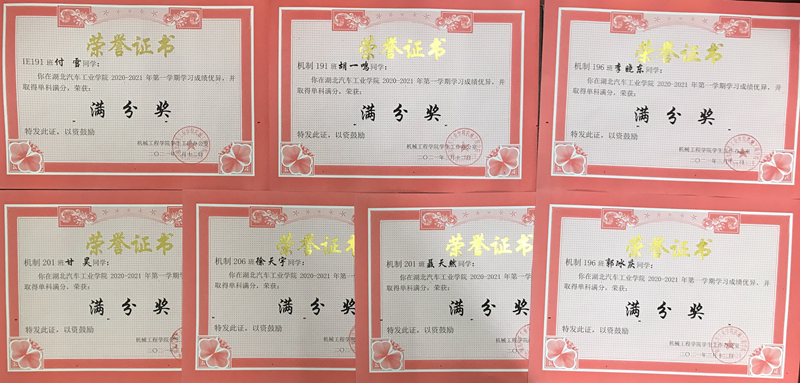 荣誉证书
IE191 班 付 雪 同学：
你在湖北汽车工业学院 2020-2021 年第一学期学习成绩优异，并
取得单科满分，荣获：
满 分 奖
特发此证，以资鼓励
机械工程学院学生工作办公室
二〇二一年三月十二日
荣誉证书
机制 191 班 胡一鸣 同学：
你在湖北汽车工业学院 2020-2021 年第一学期学习成绩优异，并
取得单科满分，荣获：
满 分 奖
特发此证，以资鼓励
机械工程学院学生工作办公室
二〇二一年三月十二日
荣誉证书
机制 196 班 李晓东 同学：
你在湖北汽车工业学院 2020-2021 年第一学期学习成绩优异，并
取得单科满分，荣获：
满 分 奖
特发此证，以资鼓励
机械工程学院学生工作办公室
二〇二一年三月十二日
荣誉证书
机制 201 班 甘 昊 同学：
你在湖北汽车工业学院 2020-2021 年第一学
取得单科满分，荣获：
满 分 奖
特发此证，以资鼓励
机械工程学院学
二〇二
荣誉证书
机制 206 班 徐天宇 同学：
你在湖北汽车工业学院 2020-2021 年第一
取得单科满分，荣获：
满 分 奖
特发此证，以资鼓励
机械工程学院
二〇
荣誉证书
机制 201 班 聂天然 同学：
你在湖北汽车工业学院 2020-2021 年第一学
取得单科满分，荣获：
满 分 奖
特发此证，以资鼓励
机械工程学院
二〇
荣誉证书
机制 196 班 郭冰 同学：
你在湖北汽车工业学院 2020-2021 年第一学期学习成绩优异，并
取得单科满分，荣获：
满 分 奖
特发此证，以资鼓励
机械工程学院学生工作办公室
二〇二一年三月十二日